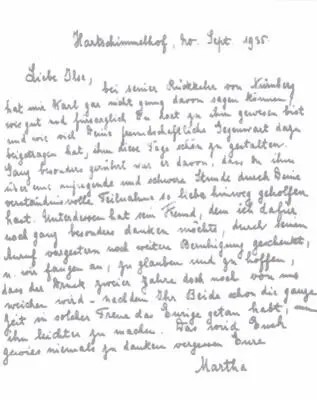 Hartschimmelhof, 20. Sept. 1935.
Liebe Ilse,
bei seiner Rückkehr von Nürnberg
hat mir Karl gar nicht genug davon sagen können,
wie gut und fürsorglich Du hast zu ihm gewesen bist
und wie viel Deine freundschaftliche Gegenwart dazu
beigetragen hat, ihm diese Tage schön zu gestalten.
Ganz besonders gerührt war er davon, dass Du ihm
über eine aufregende und schwere Stunde durch Deine
verständnisvolle Teilnahme so liebe hinweg geholfen
hast. Unterdessen hat sein Freund, dem ich dafür
noch ganz besonders danken möchte, durch seinen
Anruf vorgestern noch weitere Beruhigung geschenkt,
u. wir fangen an, zu glauben und zu hoffen,
dass der Druck zweier Jahre doch noch von uns
weichen wird - nachdem Ihr Beide schon die ganze
Zeit in solcher Treue das Eurige getan habt,
ihn leichter zu machen. Das wird Euch
gewiss niemals zu danken vergessen Eure
Martha